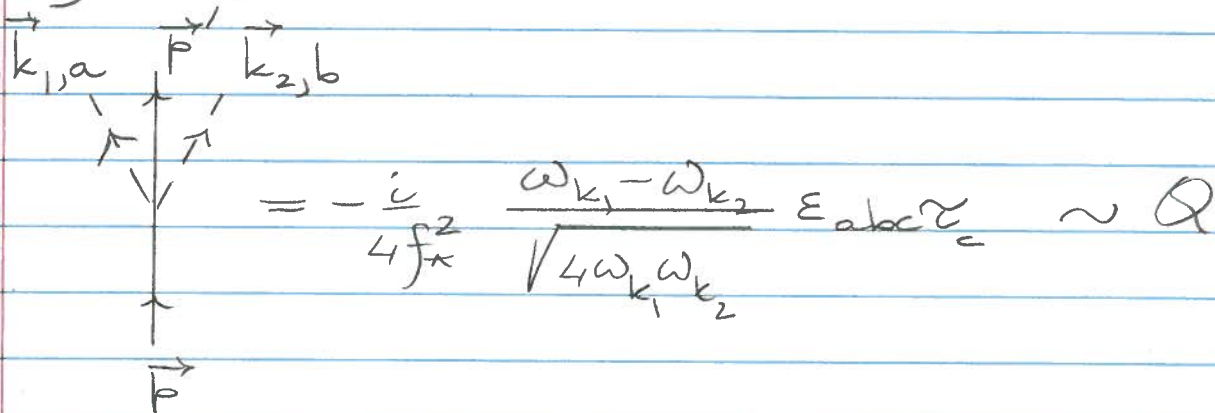 k⃗₁,a p⃗′ k⃗₂,b
= - i/4f_π² (ω_k₁ - ω_k₂)/√(4ω_k₁ω_k₂) ε_abc τ_c ~ Q
p⃗